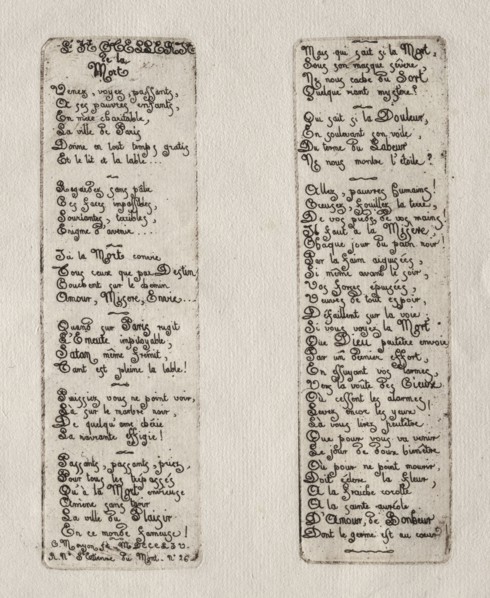 L'HÔTELLERIE
De la
Mort
Venez, voyez, passants,
A ses pauvres enfants,
En mère charitable,
La ville de Paris
Donne en tout temps gratis
Et le lit et la table...
Regardez sans pâlir
Ces faces impassibles,
Souriantes, terribles,
Enigme d'avenir....
Ici la Mort convie
Tous ceux que par Destin
Couchent sur le chemin
Amour, Misère, Envie...
Quand sur Paris rugit
L'Emeute impitoyable,
Satan même frémit,
Tant est pleine la table!
Puissiez vous ne point voir,
Là sur le marbre noir,
De quelqu'âme chérie
La navrante effigie!
Passants, passants, priez,
Pour tous les trépassés
Qu'à la Mort, envieuse
Amène sans finir
La ville du Plaisir
En ce monde fameuse!
C. Meryon, fé. M.DCCCLIV.
R. Nve St Etienne du Mont. No. 26
Mais qui sait si la Mort,
Sous son masque sévère
Ne nous cache du Sort
Quelque riant mystère?
Qui sait si la Douleur,
En soulevant son voile,
Du terme du Labeur
Ne nous montre l'étoile?
Allez, pauvres humains!
Creusez, fouillez la terre,
De vos pieds, de vos mains!
Il faut à la Misère,
Chaque jour du pain noir!
Par la faim aiguisées,
Si même avant le soir,
Vos forces épuisées,
Veuves de tout espoir,
Défaillent sur la voie:
Si vous voyez la Mort
Que DIEU peutêtre envoie,
Par un dernier effort,
En essuyant vos larmes,
Vers la voûte des Cieux
Où cessent les alarmes
Levez encor les yeux!
Là vous lirez peutêtre
Que pour vous va venir
Le jour de doux bienêtre
Où pour ne point mourir,
Doit éclore la fleur,
A la fraîche corolle
A la sainte auréole
D'Amour, de Bonheur
Dont le germe est au cœur!